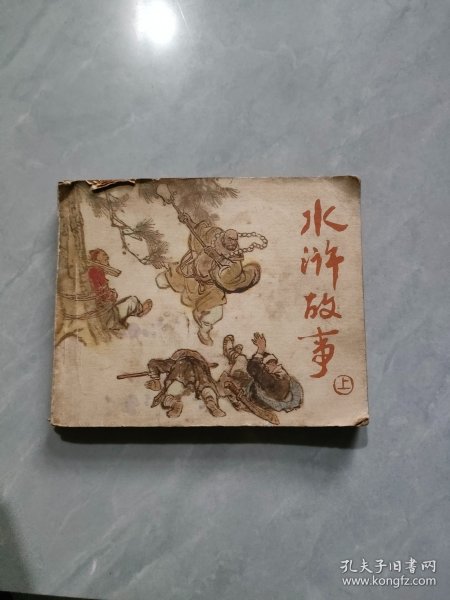 水浒故事
上
孔夫子旧书网
www.kongfz.com